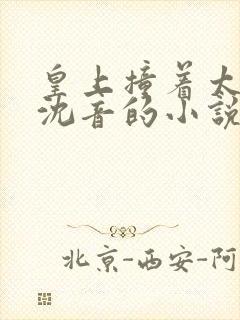 皇上撞着太
沈音的小說
北京-西安-阿